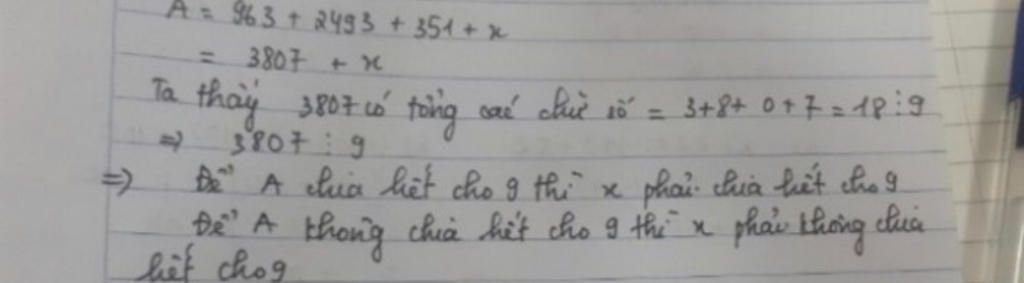 A = 963 + 2493 + 351 + x
= 3807 + x
Ta thấy 3807 có tổng các chữ số = 3+8+0+7 = 18 ⋮ 9
=> 3807 ⋮ 9
=> Để A chia hết cho 9 thì x phải chia hết cho 9
Để A không chia hết cho 9 thì x phải không chia
hết cho 9